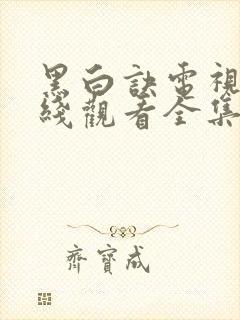 黑白訣電視
綫觀看全集
齊寶成